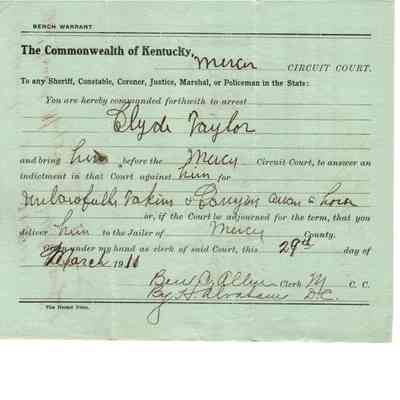 BENCH WARRANT
The Commonwealth of Kentucky,
Mercer CIRCUIT COURT.
To any Sheriff, Constable, Coroner, Justice, Marshal, or Policeman in the State:
You are hereby commanded forthwith to arrest
Clyde Taylor
and bring him before the Mercer Circuit Court, to answer an
indictment in that Court against him for
Unlawfully Taking & Carrying away a
or, if the Court be adjourned for the term, that you
deliver him to the Jailer of Mercer County.
Given under my hand as clerk of said Court, this 29th day of
March 1911
Ben C. Allin Clerk M C. C.
By H. Abraham D.C.